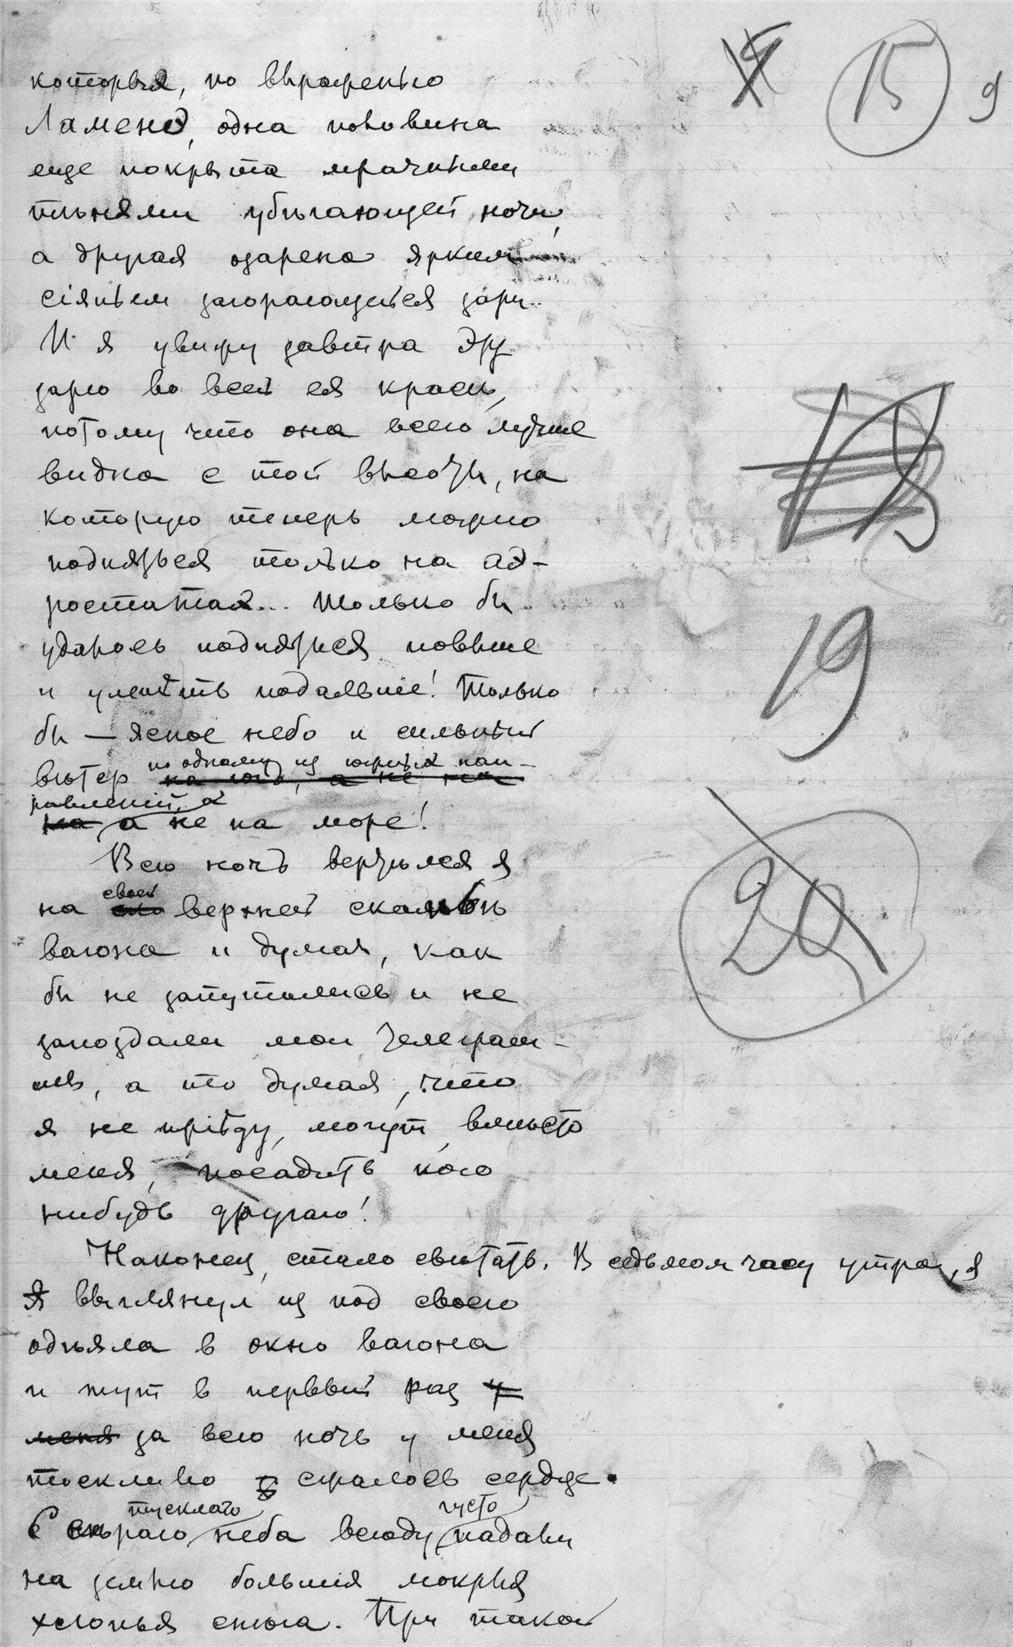 15 9
которыя, по выраженью
Ламенэ, одна половина
еще покрыта мрачными
тѣнями убѣгающей ночи,
а другая озарена ярким
сіяньем загорающейся зари..
И я увижу завтра эту
зарю во всей ея красѣ,
потому что она всего лучше
видна с той высоты, на
которую теперь можно
подняться только на аэ-
ростатах... Только бы
удалось подняться повыше
и улетѣть подальше! Только
бы — ясное небо и сильный
19
по одному из южных нап-
вѣтер на юг, а не на
равленій, а
на, а не на море!
Всю ночь вертѣлся я
своей
на верхней скамьѣ
20
вагона и думал, как
бы не запутались и не
запоздали мои телеграм-
мы, а то думая, что
я не пріѣду, могут вмѣсто
меня, посадить кого
нибудь другаго!
Наконец, стало свѣтать. В седьмом часу утра, я
Я выглянул из под своего
одѣяла в окно вагона
и тут в первый раз у
меня за всю ночь у меня
тоскливо сжалось сердце.
тусклаго густо
С сѣраго неба всюду падали
на землю большія мокрыя
хлопья снѣга. При такой